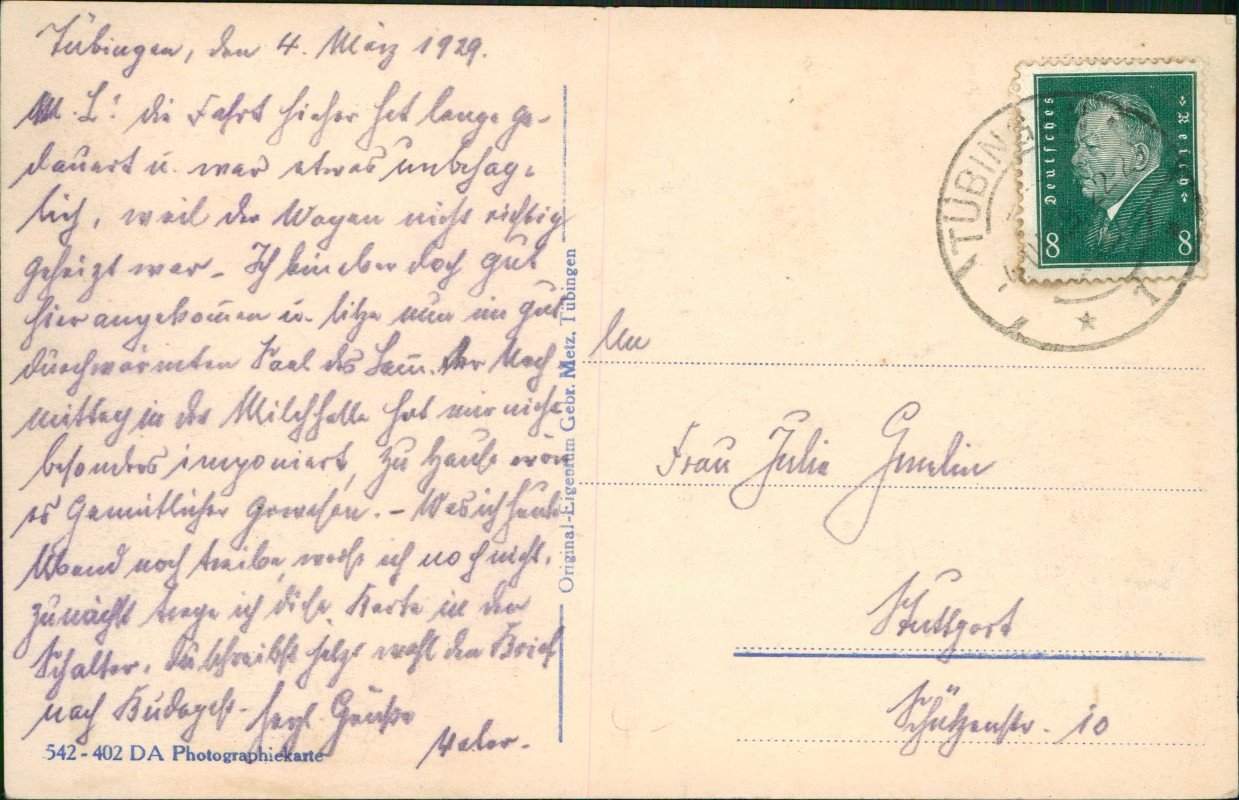 Tübingen, den 4. März 1929.
M. L! die Fahrt hieher hat lange ge-
dauert u. war etwas unbehag-
lich, weil der Wagen nicht richtig
geheizt war. Ich bin aber doch gut
hier angekommen u. sitze nun im gut
durchwärmten Saal des Lam. Der Nach-
mittag in der Milchhalle hat mir nicht
besonders imponiert, zu Hause wär
es Gemütlicher gewesen. - Was ich heute
Abend noch treibe, weiß ich noch nicht,
zunächst trage ich diese Karte in den
Schalter. Du schreibst jetzt wohl den Brief
nach Budapest. herzl. Grüße
Vater.
542 - 402 DA Photographiekarte
Original-Eigentum Gebr. Metz, Tübingen
Deutsches Reich
8 8
TÜBINGEN
1
An
Frau Julie Gmelin
Stuttgart
Schützenstr. 10